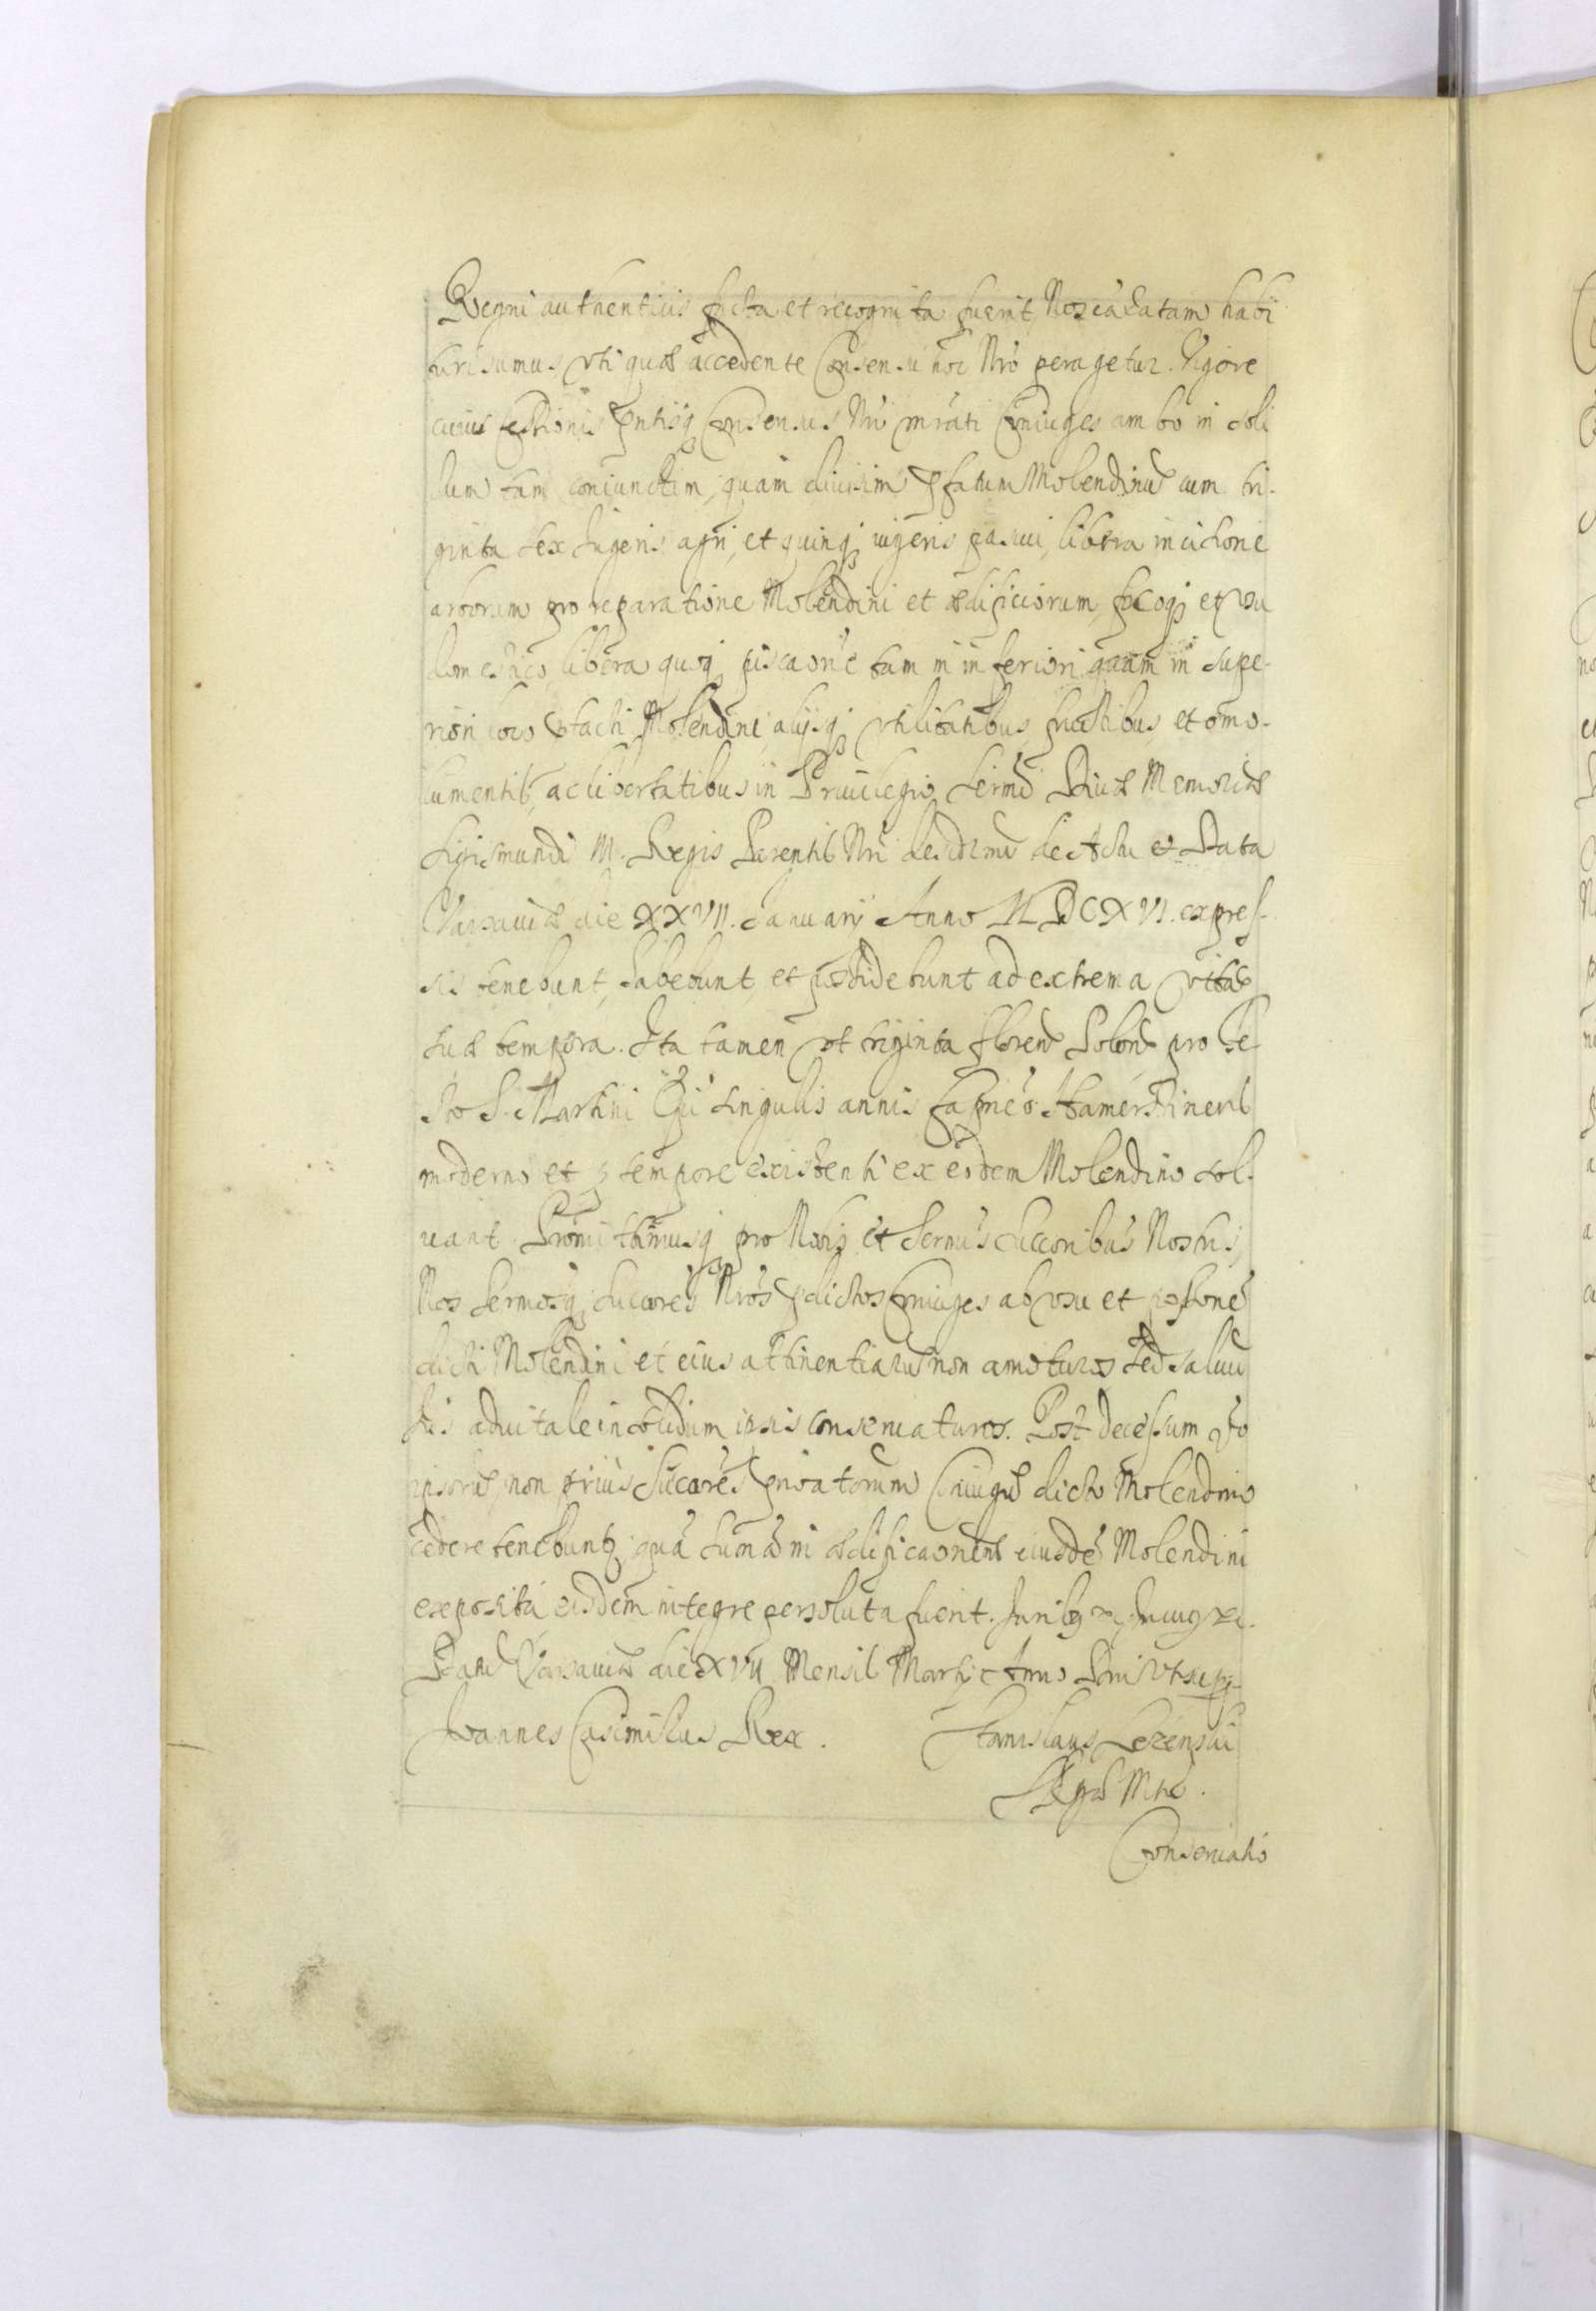 Regni authenticis facta et recognita fuerit, Nos eā ratam habi
turi sumus, vti quæ accedente Consensu hoc Nr̄o peragetur. Vigore
cuius cessionis p̄ntisq; Consensus Nr̄i mrāti Coniuges ambo in soli
dum tam coniunctim, quam diuisim p̄fatum Molendinū cum tri-
ginta sex Iugeris agri, et quinq; iugeris pascui, libera incisione
arborum pro reparatione Molendini et ædificiorum, focoq; et vsu
domestico, libera quoq; piscaōne tam in inferiori quam in supe-
riori loco p̄fati Molendini, alijsq; vtilitatibus, fructibus, et emo-
lumentis, ac libertatibus in Priuilegio Sermi Diuæ Memoriæ
Sigismundi III. Regis Parentis Nr̄i desidtmi de Actu et Data
Varsauiæ die XXVII. Ianuarij Anno MDCXVI. expres-
sis tenebunt, habebunt, et possidebunt ad extrema vitæ
suæ tempora. Ita tamen vt triginta floren Polon pro fe-
sto S. Martini Epi singulis annis Capneo Hamersteinens
moderno et p tempore existenti ex eodem Molendino sol-
uant. Promittimusq; pro Nobis et Sermis Succoribus Nostris,
Nos Sermosq; Succores Nr̄os p̄dictos Coniuges ab vsu et possone
dicti Molendini et eius attinentiarū non amoturos, sed saluū
Ius aduitale in solidum ipsis conseruaturos. Post decessum v̄o
ipsorū, non prius Succores priuatorum Coniugū dicto Molendino
cedere tenebunt, quā summa in ædificaōnem eiusdē Molendini
exposita, eisdem integre persoluta fuerit. Iurib9 &c. In cui9 rei.
Datū Varsauiæ die XVII Mensis Martij Anno Dni vt supr.
Joannes Casimirus Rex. Stanislaus Lezenski
S. Regiæ Mtis.
Conseruatio